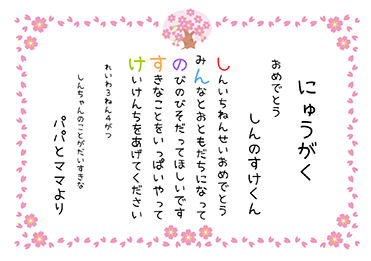 にゅうがく
おめでとう
しんのすけくん
しんいちねんせいおめでとう
みんなとおともだちになって
のびのびそだってほしいです
すきなことをいっぱいやって
けいけんちをあげてください
れいわ3ねん4がつ
しんちゃんのことがだいすきな
パパとママより